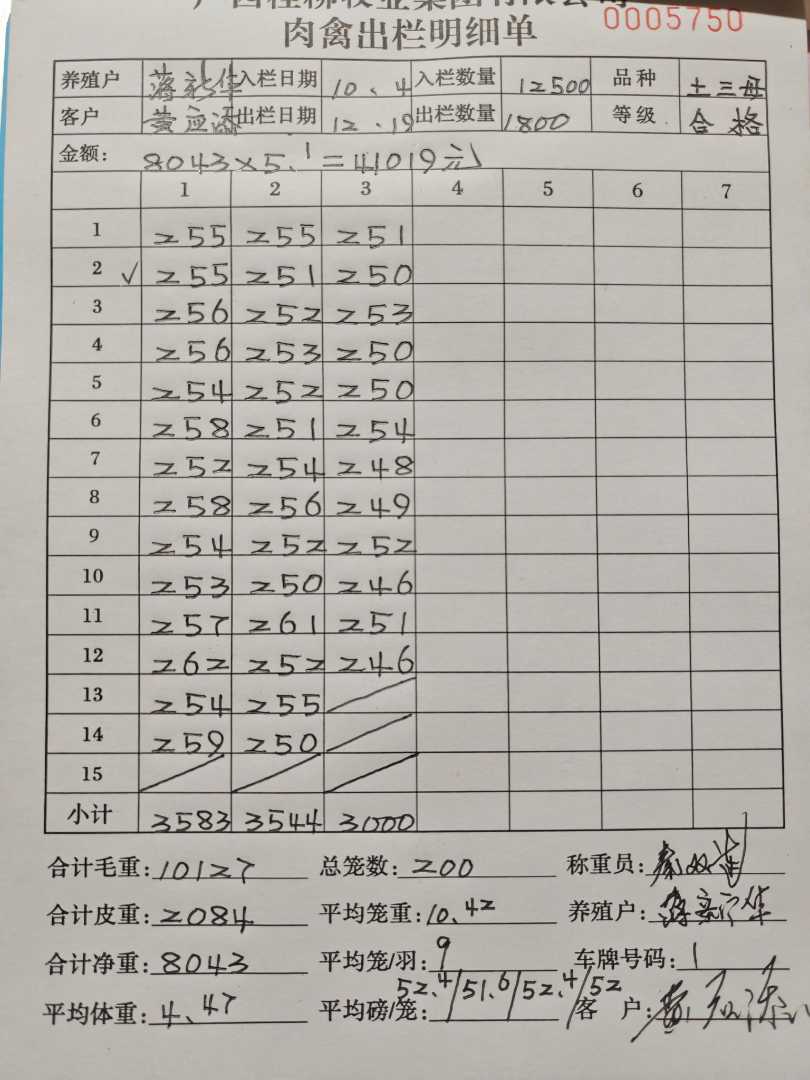 0005750
肉禽出栏明细单
养殖户 蒋新华 入栏日期 10.4 入栏数量 12500 品种 土三母
客户 黄应添 出栏日期 12.19 出栏数量 1800 等级 合格
金额: 8043×5.1=41019元
1 2 3 4 5 6 7
1 255 255 251
2 ✓ 255 251 250
3 256 252 253
4 256 253 250
5 254 252 250
6 258 251 254
7 252 254 248
8 258 256 249
9 254 252 252
10 253 250 246
11 257 261 251
12 262 252 246
13 254 255
14 259 250
15
小计 3583 3544 3000
合计毛重: 10127 总笼数: 200 称重员:
合计皮重: 2084 平均笼重: 10.42 养殖户: 蒋新华
合计净重: 8043 平均笼/羽: 9 车牌号码: 1
平均体重: 4.47 平均磅/笼: 52.4/51.6/52.4/52 客 户: